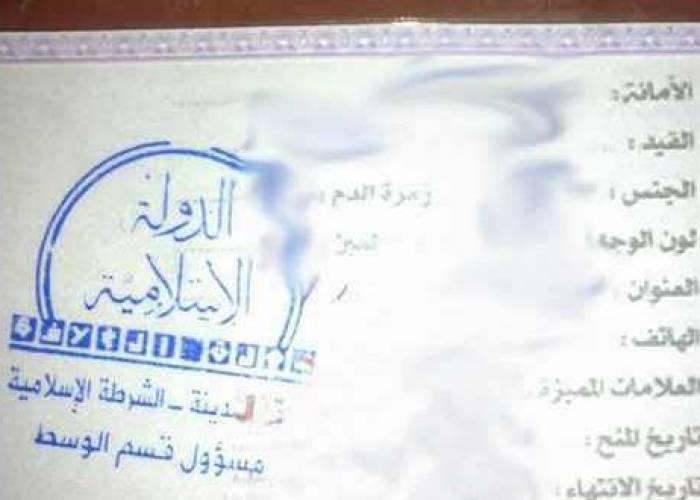 الأمانة :
القيد :
الجنس : زمرة الدم :
لون الوجه
العنوان :
الهاتف :
العلامات المميزة
تاريخ المنح :
تاريخ الانتهاء :
الدولة
الإسلامية
الشرطة الإسلامية
مسؤول قسم الوسط